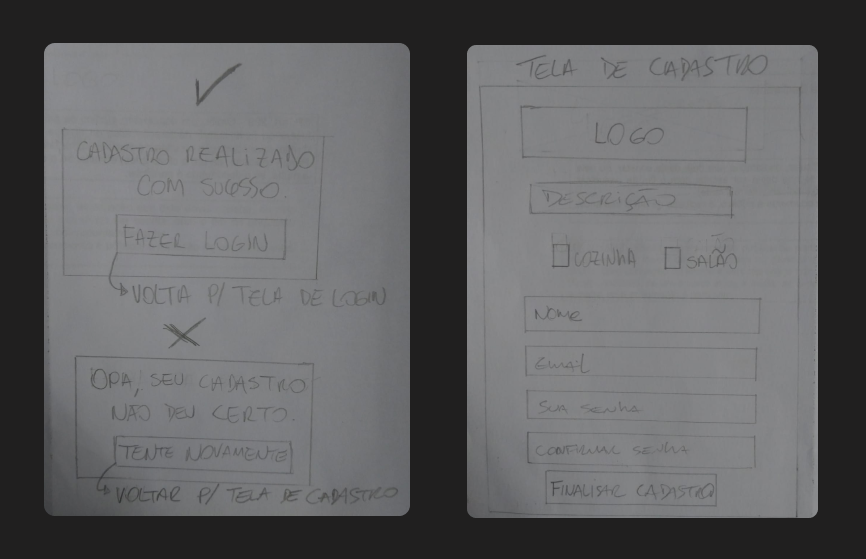 CADASTRO REALIZADO
COM SUCESSO.
FAZER LOGIN
VOLTA P/ TELA DE LOGIN
OPA, SEU CADASTRO
NÃO DEU CERTO.
TENTE NOVAMENTE
VOLTAR P/ TELA DE CADASTRO
TELA DE CADASTRO
LOGO
DESCRIÇÃO
COZINHA SALÃO
NOME
EMAIL
SUA SENHA
CONFIRMAR SENHA
FINALISAR CADASTRO